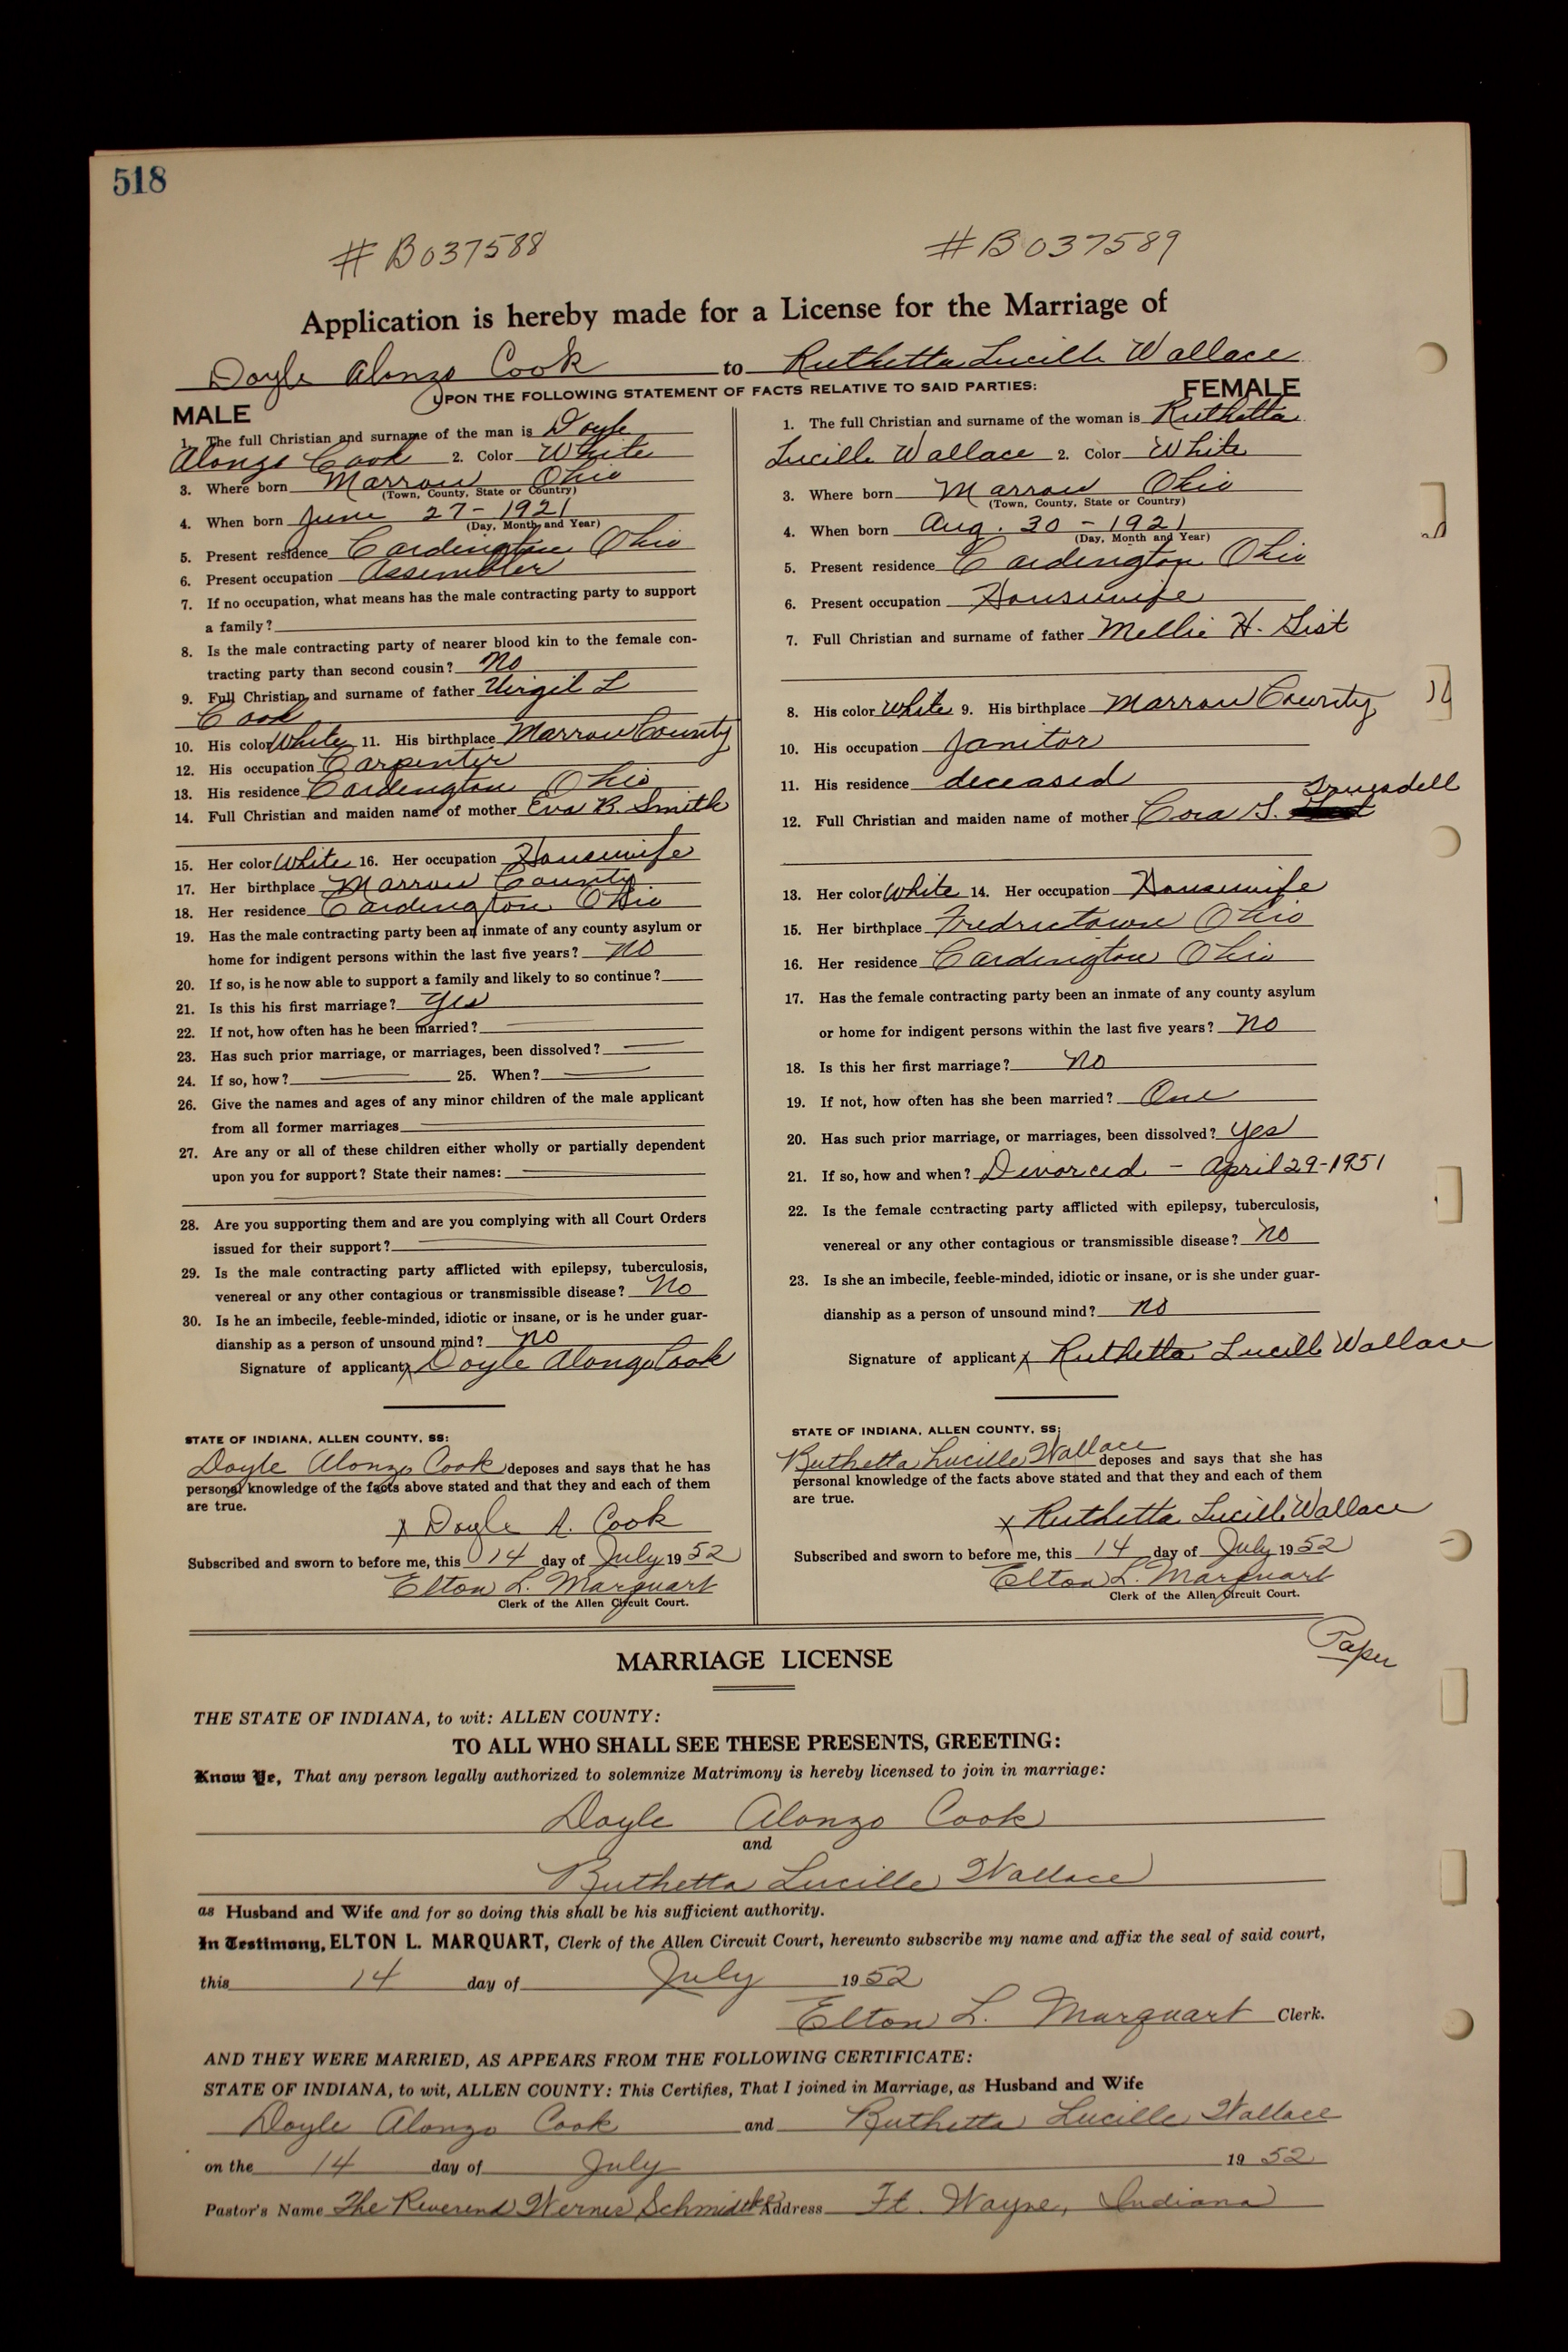 518
#B037588 #B037589
Application is hereby made for a License for the Marriage of
Doyle Alonzo Cook to Ruthetta Lucille Wallace
UPON THE FOLLOWING STATEMENT OF FACTS RELATIVE TO SAID PARTIES:
MALE
1. The full Christian and surname of the man is Doyle
Alonzo Cook 2. Color White
3. Where born Marrow Ohio
(Town, County, State or Country)
4. When born June 27-1921
(Day, Month and Year)
5. Present residence Cardington Ohio
6. Present occupation Assembler
7. If no occupation, what means has the male contracting party to support
a family?
8. Is the male contracting party of nearer blood kin to the female con-
tracting party than second cousin? No
9. Full Christian and surname of father Virgil L
Cook
10. His color White 11. His birthplace Marrow County
12. His occupation Carpenter
13. His residence Cardington Ohio
14. Full Christian and maiden name of mother Eva B. Smith
15. Her color White 16. Her occupation Housewife
17. Her birthplace Marrow County
18. Her residence Cardington Ohio
19. Has the male contracting party been an inmate of any county asylum or
home for indigent persons within the last five years? no
20. If so, is he now able to support a family and likely to so continue?
21. Is this his first marriage? yes
22. If not, how often has he been married?
23. Has such prior marriage, or marriages, been dissolved?
24. If so, how? 25. When?
26. Give the names and ages of any minor children of the male applicant
from all former marriages
27. Are any or all of these children either wholly or partially dependent
upon you for support? State their names:
28. Are you supporting them and are you complying with all Court Orders
issued for their support?
29. Is the male contracting party afflicted with epilepsy, tuberculosis,
venereal or any other contagious or transmissible disease? No
30. Is he an imbecile, feeble-minded, idiotic or insane, or is he under guar-
dianship as a person of unsound mind? no
Signature of applicant x Doyle Alonzo Cook
STATE OF INDIANA, ALLEN COUNTY, SS:
Doyle Alonzo Cook deposes and says that he has
personal knowledge of the facts above stated and that they and each of them
are true.
x Doyle A. Cook
Subscribed and sworn to before me, this 14 day of July 1952
Elton L. Marquart
Clerk of the Allen Circuit Court.
FEMALE
1. The full Christian and surname of the woman is Ruthetta
Lucille Wallace 2. Color White
3. Where born Marrow Ohio
(Town, County, State or Country)
4. When born Aug. 30-1921
(Day, Month and Year)
5. Present residence Cardington Ohio
6. Present occupation Housewife
7. Full Christian and surname of father Mellie H. Gist
8. His color White 9. His birthplace Marrow County
10. His occupation Janitor
11. His residence deceased
12. Full Christian and maiden name of mother Cora S. Truesdell
13. Her color White 14. Her occupation Housewife
15. Her birthplace Fredrictown Ohio
16. Her residence Cardington Ohio
17. Has the female contracting party been an inmate of any county asylum
or home for indigent persons within the last five years? no
18. Is this her first marriage? no
19. If not, how often has she been married? One
20. Has such prior marriage, or marriages, been dissolved? yes
21. If so, how and when? Divorced - April 29-1951
22. Is the female contracting party afflicted with epilepsy, tuberculosis,
venereal or any other contagious or transmissible disease? no
23. Is she an imbecile, feeble-minded, idiotic or insane, or is she under guar-
dianship as a person of unsound mind? no
Signature of applicant x Ruthetta Lucille Wallace
STATE OF INDIANA, ALLEN COUNTY, SS:
Ruthetta Lucille Wallace deposes and says that she has
personal knowledge of the facts above stated and that they and each of them
are true.
x Ruthetta Lucille Wallace
Subscribed and sworn to before me, this 14 day of July 1952
Elton L. Marquart
Clerk of the Allen Circuit Court.
Paper
MARRIAGE LICENSE
THE STATE OF INDIANA, to wit: ALLEN COUNTY:
TO ALL WHO SHALL SEE THESE PRESENTS, GREETING:
Know Ye, That any person legally authorized to solemnize Matrimony is hereby licensed to join in marriage:
Doyle Alonzo Cook
and
Ruthetta Lucille Wallace
as Husband and Wife and for so doing this shall be his sufficient authority.
In Testimony, ELTON L. MARQUART, Clerk of the Allen Circuit Court, hereunto subscribe my name and affix the seal of said court,
this 14 day of July 1952
Elton L. Marquart Clerk.
AND THEY WERE MARRIED, AS APPEARS FROM THE FOLLOWING CERTIFICATE:
STATE OF INDIANA, to wit, ALLEN COUNTY: This Certifies, That I joined in Marriage, as Husband and Wife
Doyle Alonzo Cook and Ruthetta Lucille Wallace
on the 14 day of July 1952
Pastor's Name The Reverend Werner Schmidtke Address Ft. Wayne, Indiana